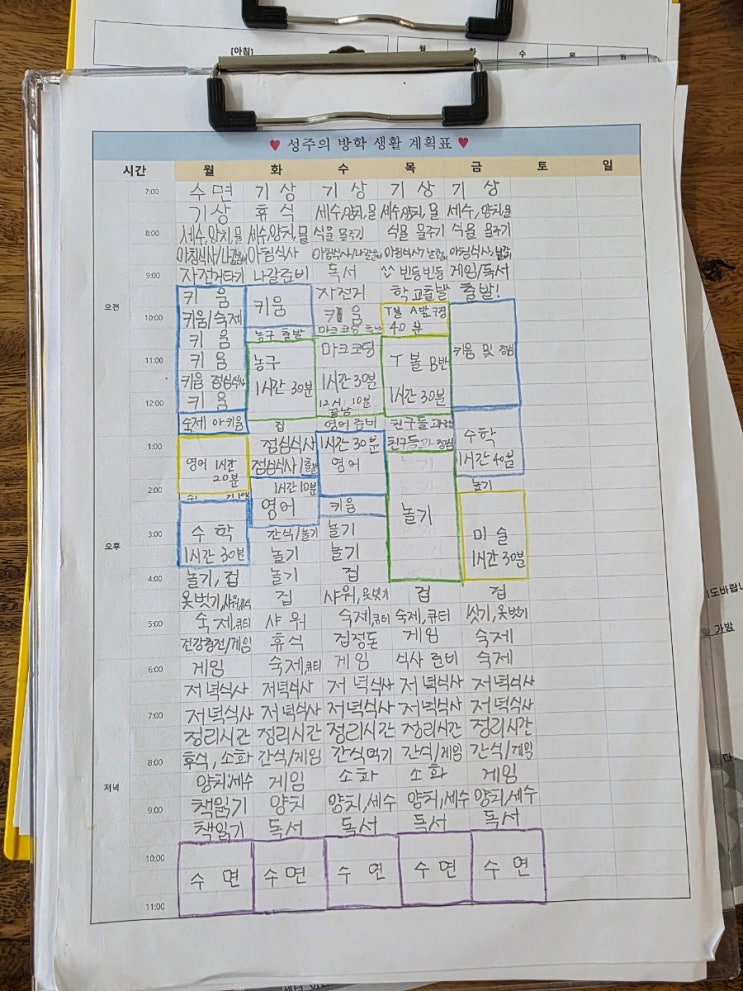 [아침]
월 화 수 목 금
♥ 성주의 방학 생활 계획표 ♥
시간 월 화 수 목 금 토 일
7:00 수면 기상 기상 기상 기상
기상 휴식 세수,양치,물 세수,양치,물 세수,양치,물
8:00 세수,양치,물 세수,양치,물 식물 물주기 식물 물주기 식물 물주기
아침식사/나갈준비 아침식사 아침식사/나갈준비 아침식사/
9:00 자전거타기 나갈준비 독서 ^^ 빈둥빈둥 게임/독서
오전 키움 키움 자전거 학교출발 출발!
10:00 키움/숙제 키움 T볼 A발구경
키움 농구 출발 마크코딩 40분
11:00 키움 농구 마크코딩 T볼 B반 키움 및 점심
키움 점심식사 1시간 30분 1시간 30분 1시간 30분
12:00 키움 12시 10분 끝남
숙제 아키움 집 영어 준비 친구들과
1:00 점심식사 1시간 30분 친구들과 점심 수학
영어 1시간 20분 점심식사/ 영어 1시간 40분
2:00 1시간 10분 놀기
영어 키움 놀기
3:00 수학 간식/놀기 놀기 미술
오후 1시간 30분 놀기 놀기 1시간 30분
4:00 놀기, 집 놀기 집
옷벗기, 집 샤워,옷벗기 집 집
5:00 숙제,큐티 샤워 숙제,큐티 숙제,큐티 씻기,옷벗기
건강충전/게임 휴식 집정돈 게임 숙제
6:00 게임 숙제,큐티 게임 식사 준비 숙제
저녁식사 저녁식사 저녁식사 저녁식사 저녁식사
7:00 저녁식사 저녁식사 저녁식사 저녁식사 저녁식사
정리시간 정리시간 정리시간 정리시간 정리시간
8:00 후식, 소화 간식/게임 간식먹기 간식/게임 간식/게임
저녁 양치,세수 게임 소화 소화 게임
9:00 책읽기 양치 양치,세수 양치,세수 양치,세수
책읽기 독서 독서 독서 독서
10:00
수면 수면 수면 수면 수면
11:00